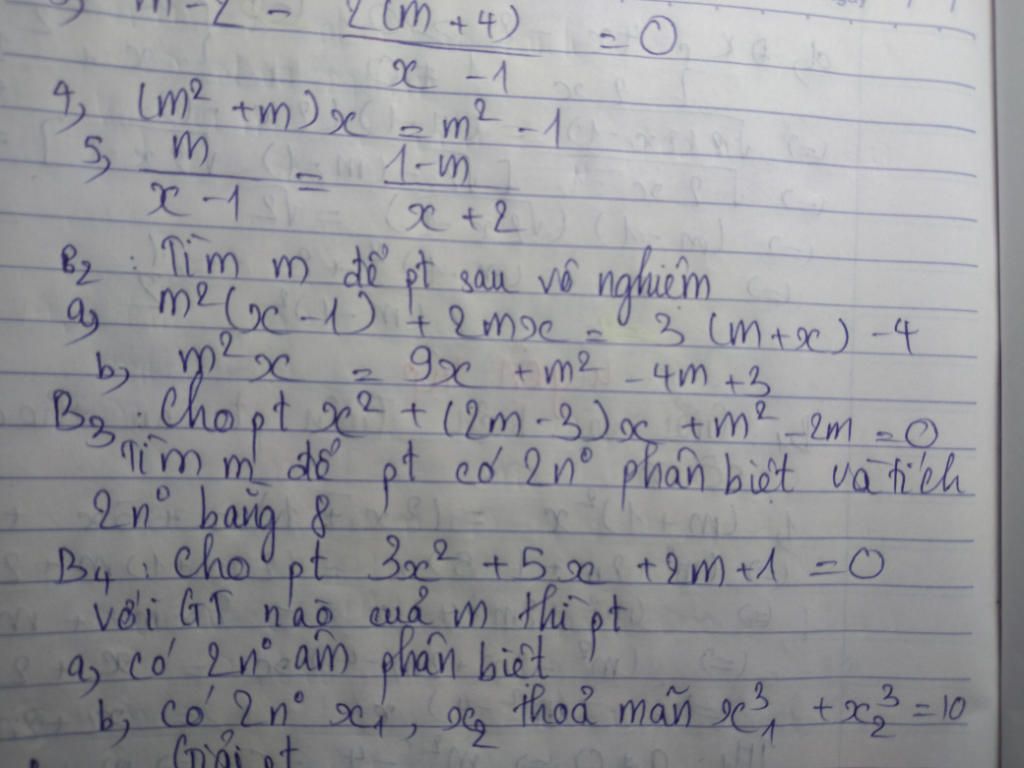 m - 2 - 2(m + 4) / (x - 1) = 0
4, (m² + m)x = m² - 1
5, m / (x - 1) = (1 - m) / (x + 2)
B2 : Tìm m để pt sau vô nghiệm
a, m²(x - 1) + 2mx = 3(m + x) - 4
b, m²x = 9x + m² - 4m + 3
B3 : Cho pt x² + (2m - 3)x + m² - 2m = 0
Tìm m để pt có 2n⁰ phân biệt và tích
2n⁰ bằng 8
B4 : Cho pt 3x² + 5x + 2m + 1 = 0
với GT nào của m thì pt
a, có 2n⁰ âm phân biệt
b, có 2n⁰ x₁, x₂ thoả mãn x₁³ + x₂³ = 10
Giải pt